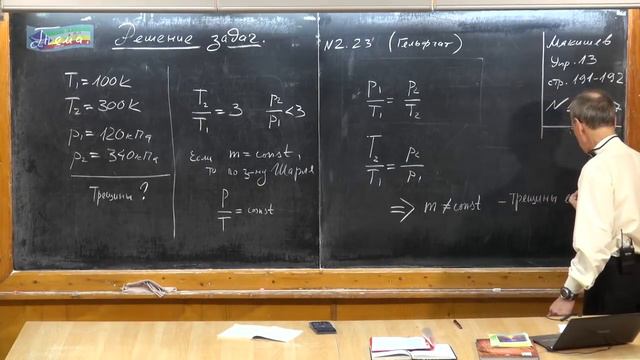 Тема. Решение задач.
N2.23 (Гельфгат)
T₁ = 100K
T₂ = 300K
p₁ = 120кПа
p₂ = 340кПа
Трещины ?
T₂/T₁ = 3 p₂/p₁ < 3
Если m = const,
то по з-ну Шарля
P/T = const
P₁/T₁ = P₂/T₂
T₂/T₁ = p₂/p₁
⇒ m ≠ const - трещины
Мякишев
Упр. 13
стр. 191-192
N